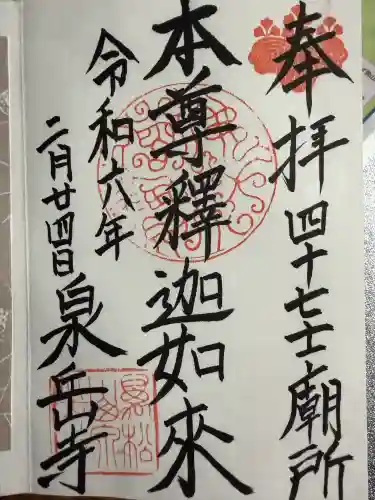 奉拝四十七士廟所
本尊釋迦如來
令和六年
二月廿四日泉岳寺